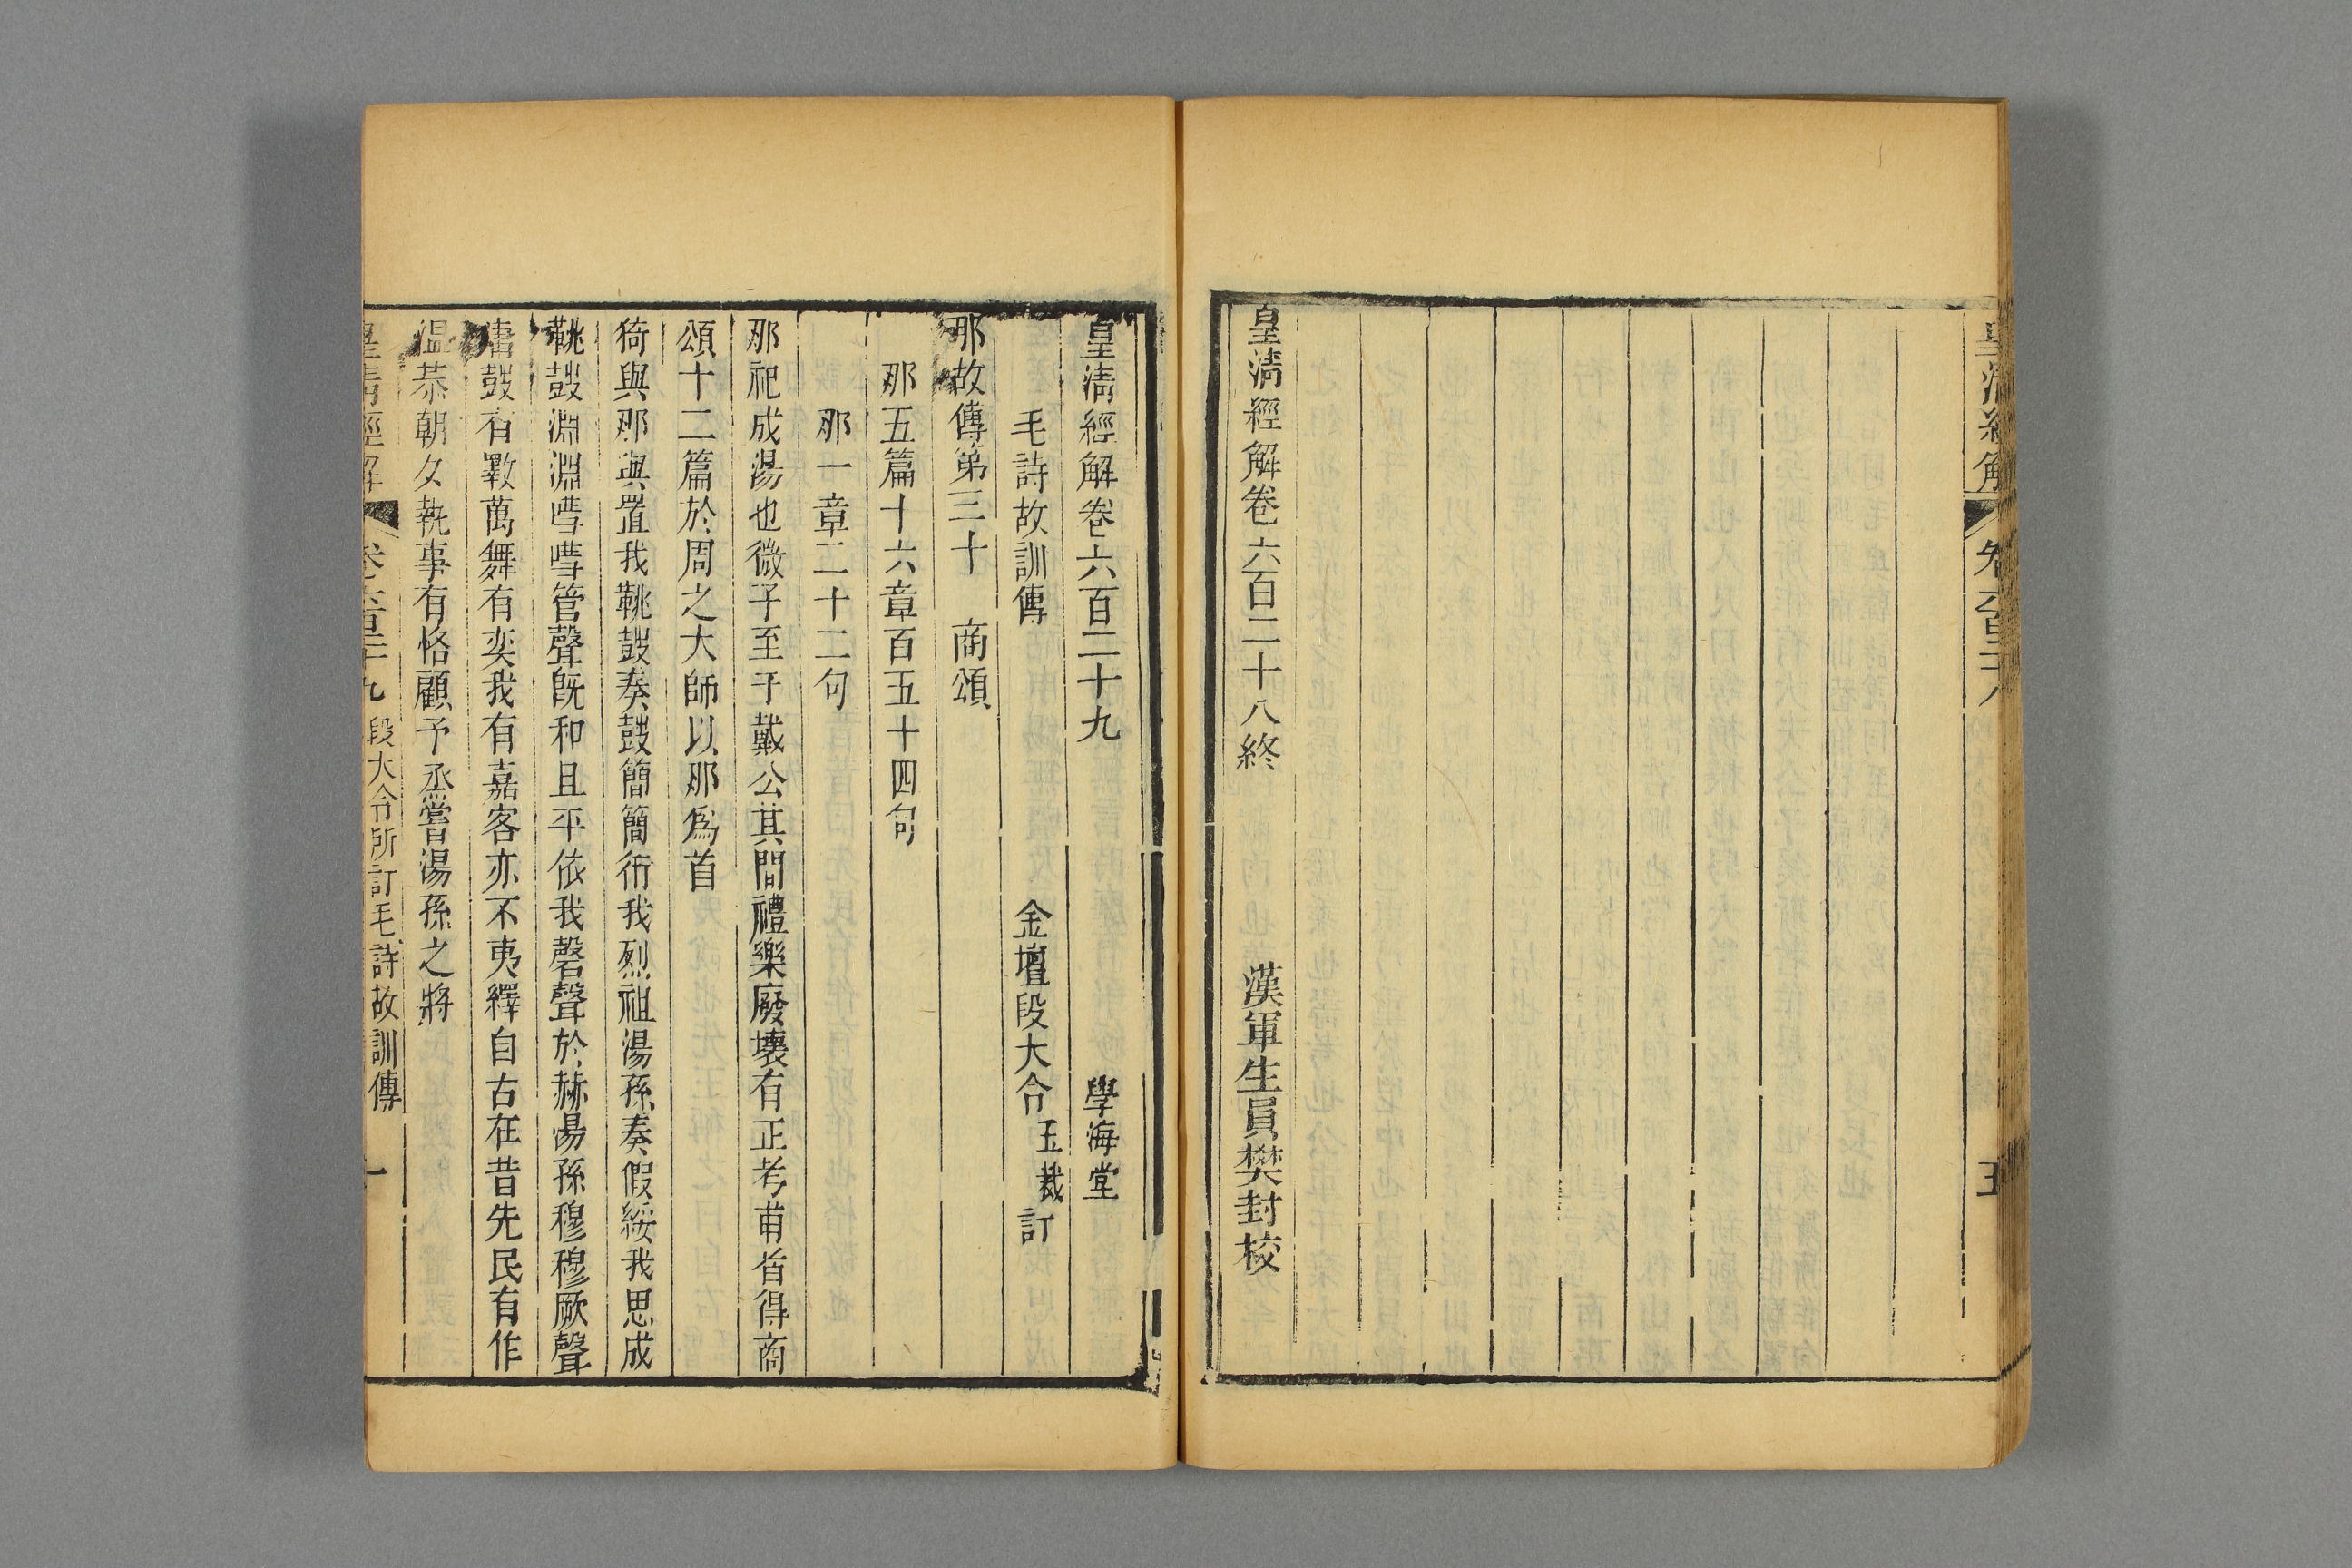 皇清經解 卷六百二十八 五
皇清經解卷六百二十八終 漢軍生員樊封校
皇清經解卷六百二十九 學海堂
毛詩故訓傳 金壇段大令玉裁訂
那故傳第三十 商頌
那五篇十六章百五十四句
那一章二十二句
那祀成湯也微子至于戴公其間禮樂廢壞有正考甫者得商
頌十二篇於周之大師以那爲首
猗與那與置我鞉鼓奏鼓簡簡衎我烈祖湯孫奏假綏我思成
鞉鼓淵淵嘒嘒管聲旣和且平依我磬聲於赫湯孫穆穆厥聲
庸鼓有斁萬舞有奕我有嘉客亦不夷繹自古在昔先民有作
溫恭朝夕執事有恪顧予烝嘗湯孫之將
皇清經解 卷六百二十九 段大令所訂毛詩故訓傳 一